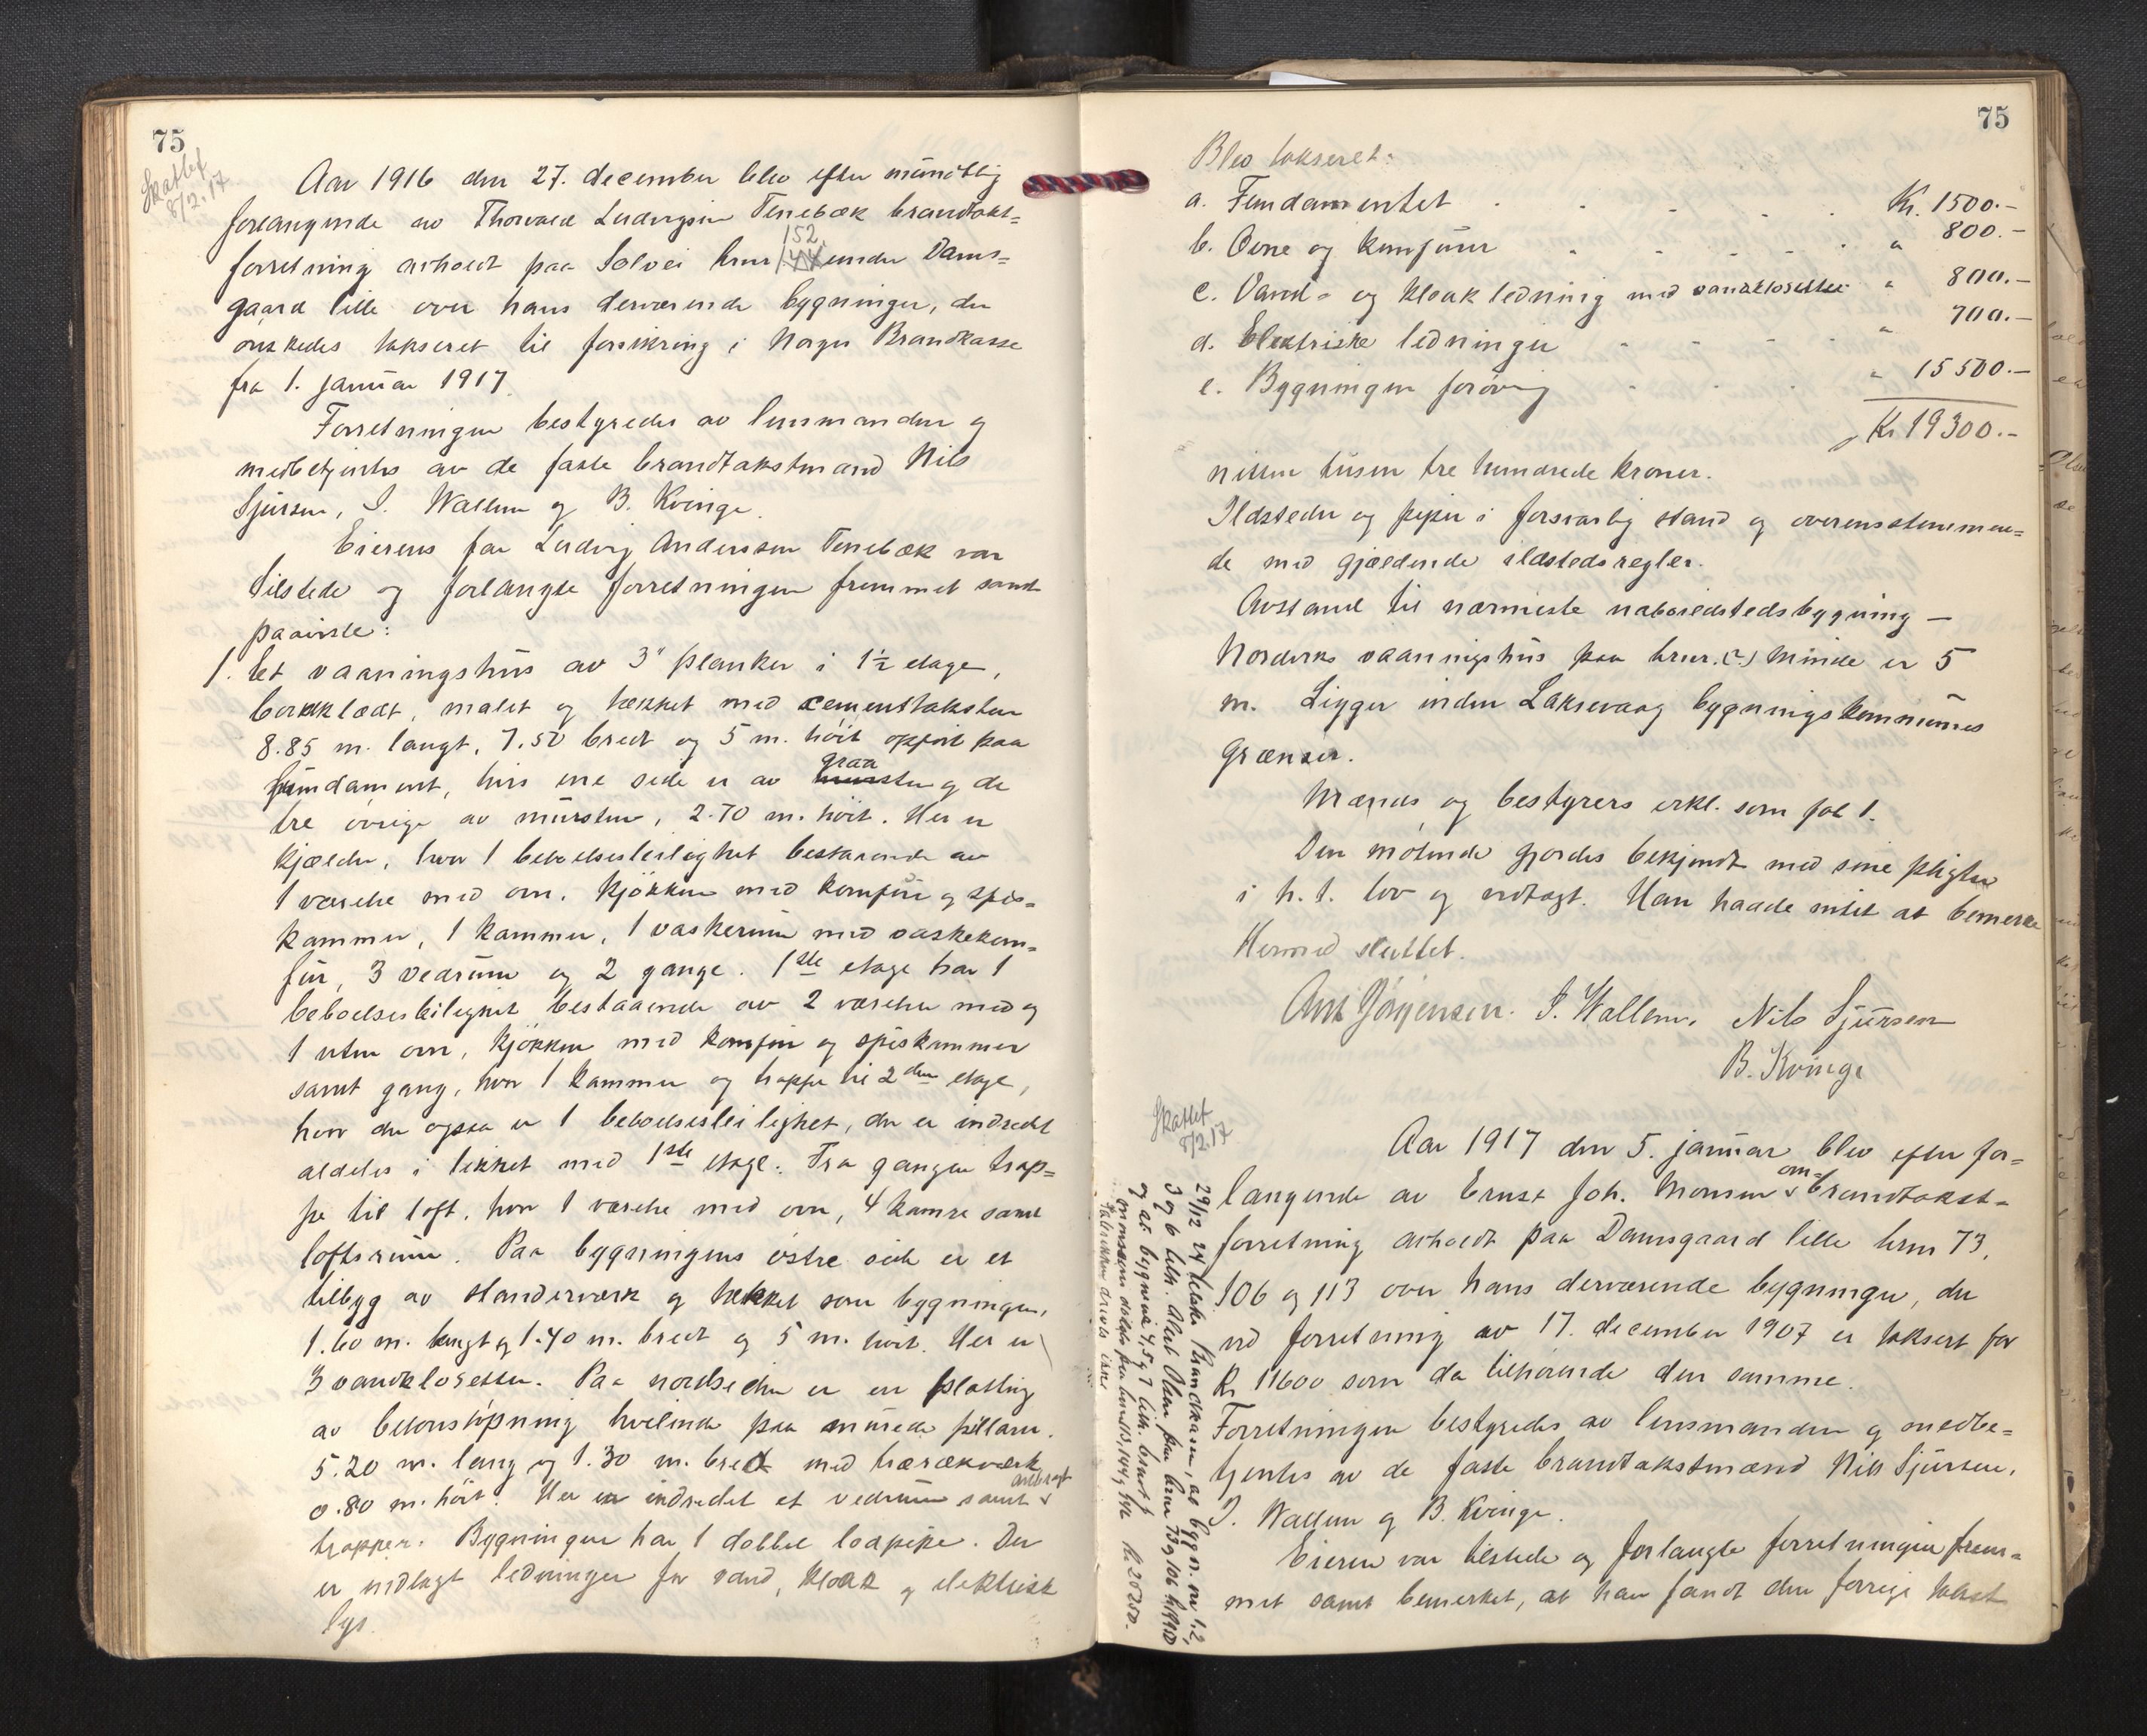 75
Skattet
8/2.17
Aar 1916 den 27. december blev efter mundtlig
forlangende av Thorvald Ludvigsen Tenebæk brandtakst=
forretning avholdt paa Solvei brnr 152 under Dams=
gaard lille over hans derværende bygninger, der
ønskedes takseret til forsikring i Norges Brandkasse
fra 1. januar 1917.
Forretningen bestyredes av lensmanden og
medbetjentes av de faste brandtakstmænd Nils
Sjursen, I. Wallem og B. Kvinge.
Eierens far Ludvig Andersen Tenebæk var
tilstede og forlangte forretningen fremmet samt
paaviste:
1. Et vaaningshus av 3" planker i 1½ etage,
bordklædt, malet og tækket med cementtaksten
8.85 m. langt, 7.50 bredt og 5 m. høit opført paa
fundament, hvis ene side er av graasten og de
tre øvrige av mursten, 2.70 m. høit. Her er
kjælder, hvor 1 beboelsesleilighet bestaaende av
1 værelse med ovn, kjøkken med komfur og spis=
kammer, 1 kammer, 1 vaskerum med vaskekom=
fur, 3 vedrum og 2 gange. 1ste etage har 1
beboelsesleilighet bestaaende av 2 værelser med og
1 uten ovn, kjøkken med komfur og spiskammer
samt gang, hvor 1 kammer og trappe til 2den etage,
hvor der ogsaa er 1 beboelsesleilighet, der er indredet
aldeles i likhet med 1ste etage. Fra gangen trap=
pe til loft, hvor 1 værelse med ovn, 4 kamre samt
loftsrum. Paa bygningens østre side er et
tilbyg av standerværk og tækket som bygningen,
1.60 m. langt og 1.40 m. bredt og 5 m. høit. Her er
3 vandklosetter. Paa nordsiden er en platting
av betonstøpning hvilende paa murede pillarer.
5.20 m. lang og 1.30 m. bred med trærækværk
0.80 m. høit. Her er indredet et vedrum samt anbragt
trapper. Bygningen har 1 dobbel lodpipe. Der
er indlagt ledninger for vand, kloak og elektrisk
lys.
75
Blev takseret:
a. Fundamentet Kr. 1500.-
b. Ovne og komfurer " 800.-
c. Vand- og kloakledning med vandklosetter " 800.-
d. Elektriske ledninger " 700.-
e. Bygningen forøvrig " 15500.-
Kr 19300.-
nitten tusen tre hundrede kroner.
Ildsteder og piper i forsvarlig stand og overensstemmen=
de med gjældende ildstedsregler.
Avstand til nærmeste naboildstedsbygning —
Nordviks vaaningshus paa brnr. (?) Minde er 5
m. Ligger inden Laksevaag bygningskommunes
grænser.
Mænds og bestyrers erkl. som fol 1.
Den møtende gjordes bekjendt med sine pligter
i h. t. lov og vedtægt. Han hadde intet at bemerke
Hermed sluttet.
Ant Jørgensen. I. Wallem. Nils Sjursen
B. Kvinge
Skattet
8/2.17
Aar 1917 den 5. januar blev efter for=
langende av Ernst Joh. Monsen om=brandtakst=
forretning avholdt paa Damsgaard lille brnr 73,
106 og 113 over hans derværende bygninger, der
ved forretning av 17. december 1907 er taksert for
Kr 11600 som da tilhørende den samme.
Forretningen bestyredes av lensmanden og medbe=
tjentes av de faste brandtakstmænd Nils Sjursen,
I. Wallem og B. Kvinge.
Eieren var tilstede og forlangte forretningen frem=
met samt bemerket, at han fandt den forrige takst
29/12 24 Brandkassen, at bygn. nr 1, 2,
3 og 6 tilh. Olsen paa brnr 73 og 106
og at bygn nr 4, 5 og 7 tilh.
Kr 20250.-